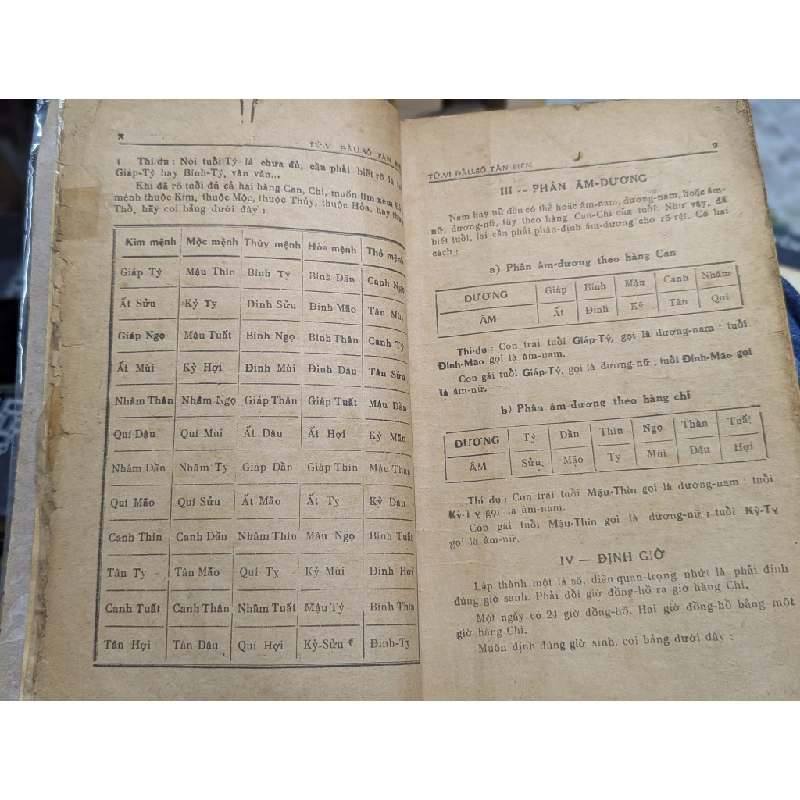 8
TỬ-VI ĐẨU-SỐ TÂN BIÊN
Thí dụ : Nói tuổi Tý là chưa đủ, cần phải biết rõ là
Giáp-Tý hay Bính-Tý, vân vân...
Khi đã rõ tuổi đủ cả hai hàng Can, Chi, muốn tìm xem
mệnh thuộc Kim, thuộc Mộc, thuộc Thủy, thuộc Hỏa, hay thuộc
Thổ, hãy coi bảng dưới đây :
Kim mệnh Mộc mệnh Thủy mệnh Hỏa mệnh Thổ mệnh
Giáp Tý Mậu Thìn Bính Tý Bính Dần Canh Ngọ
Ất Sửu Kỷ Tỵ Đinh Sửu Đinh Mão Tân Mùi
Giáp Ngọ Mậu Tuất Bính Ngọ Bính Thân Canh Tý
Ất Mùi Kỷ Hợi Đinh Mùi Đinh Dậu Tân Sửu
Nhâm Thân Nhâm Ngọ Giáp Thân Giáp Tuất Mậu Dần
Quí Dậu Quí Mùi Ất Dậu Ất Hợi Kỷ Mão
Nhâm Dần Nhâm Tý Giáp Dần Giáp Thìn Mậu Thân
Quí Mão Quí Sửu Ất Mão Ất Tỵ Kỷ Dậu
Canh Thìn Canh Dần Nhâm Thìn Mậu Ngọ Bính Tuất
Tân Tỵ Tân Mão Quí Tỵ Kỷ Mùi Đinh Hợi
Canh Tuất Canh Thân Nhâm Tuất Mậu Tý Bính Thìn
Tân Hợi Tân Dậu Quí Hợi Kỷ-Sửu Đinh-Tỵ
TỬ-VI ĐẨU-SỐ TÂN BIÊN
9
III — PHÂN ÂM-DƯƠNG
Nam hay nữ đều có thể hoặc âm-nam, dương-nam, hoặc âm-
nữ, dương-nữ, tùy theo hàng Can-Chi của tuổi. Như vậy, đã
biết tuổi, lại cần phải phân-định âm-dương cho rõ-rệt. Có hai
cách :
a) Phân âm-dương theo hàng Can
DƯƠNG Giáp Bính Mậu Canh Nhâm
ÂM Ất Đinh Kỷ Tân Quí
Thí-dụ : Con trai tuổi Giáp-Tý, gọi là dương-nam ; tuổi
Đinh-Mão gọi là âm-nam.
Con gái tuổi Giáp-Tý, gọi là dương-nữ ; tuổi Đinh-Mão gọi
là âm-nữ.
b) Phân âm-dương theo hàng chi
DƯƠNG Tý Dần Thìn Ngọ Thân Tuất
ÂM Sửu Mão Tỵ Mùi Dậu Hợi
Thí dụ : Con trai tuổi Mậu-Thìn gọi là dương-nam ; tuổi
Kỷ-Tỵ gọi là âm-nam.
Con gái tuổi Mậu-Thìn gọi là dương-nữ ; tuổi Kỷ-Tỵ
gọi là âm-nữ.
IV — ĐỊNH GIỜ
Lập thành một lá số, điều quan-trọng nhứt là phải định
đúng giờ sanh. Phải đổi giờ đồng-hồ ra giờ hàng Chi.
Một ngày có 24 giờ đồng-hồ. Hai giờ đồng-hồ bằng một
giờ hàng Chi.
Muốn định đúng giờ sinh, coi bảng dưới đây :